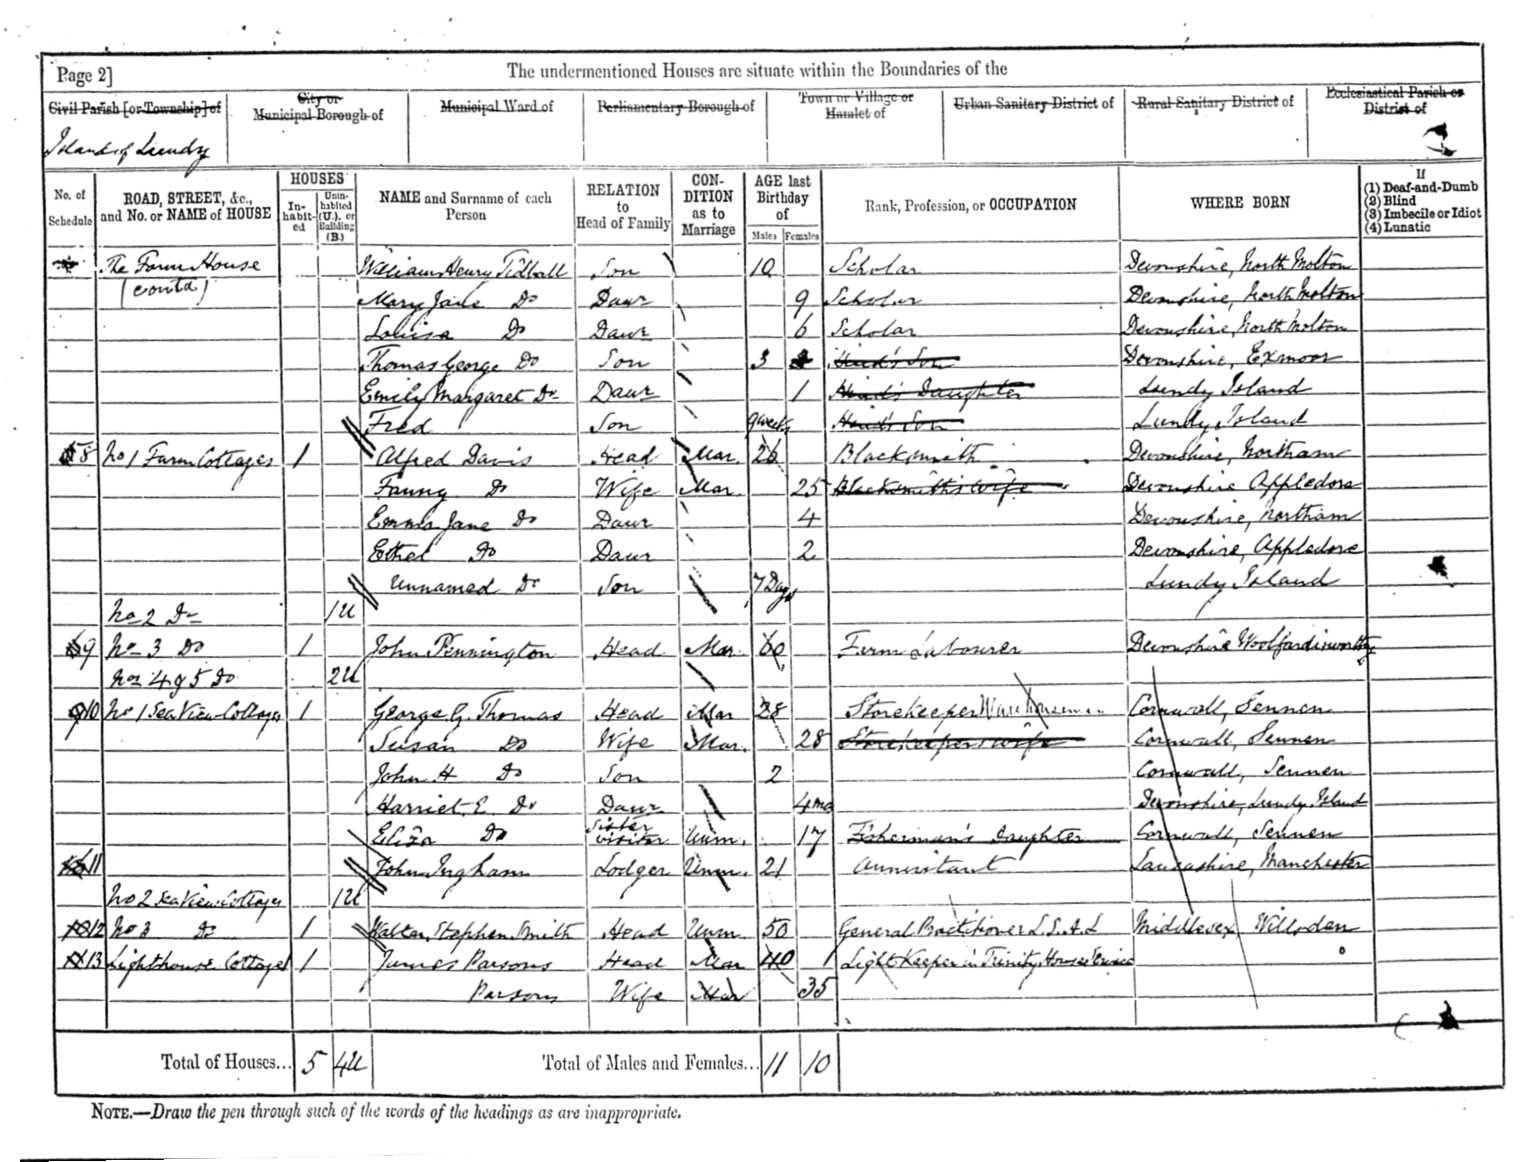 Page 2]
The undermentioned Houses are situate within the Boundaries of the
Civil Parish [or Township] of
City or Municipal Borough of
Municipal Ward of
Parliamentary Borough of
Town or Village or Hamlet of
Urban Sanitary District of
Rural Sanitary District of
Ecclesiastical Parish or District of
Island of Lundy
No. of Schedule
ROAD, STREET, &c., and No. or NAME of HOUSE
HOUSES
In-habit-ed
Unin-habited (U.), or Building (B.)
NAME and Surname of each Person
RELATION to Head of Family
CON-DITION as to Marriage
AGE last Birthday of
Males
Females
Rank, Profession, or OCCUPATION
WHERE BORN
If
(1) Deaf-and-Dumb
(2) Blind
(3) Imbecile or Idiot
(4) Lunatic
The Farm House William Henry Tidball Son 10 Scholar Devonshire, North Molton
(contd) Mary Jane Do Daur 9 Scholar Devonshire, North Molton
Louisa Do Daur 6 Scholar Devonshire, North Molton
Thomas George Do Son 3 Hind's Son Devonshire, Exmoor
Emily Margaret Do Daur 1 Hind's Daughter Lundy Island
Fred Son 9 weeks Hind's Son Lundy Island
8 No 1 Farm Cottages 1 Alfred Davis Head Mar. 26 Blacksmith Devonshire, Northam
Fanny Do Wife Mar. 25 Blacksmith's wife Devonshire Appledore
Emma Jane Do Daur 4 Devonshire, Northam
Ethel Do Daur 2 Devonshire, Appledore
Unnamed Do Son 7 Days Lundy Island
No 2 Do 1U
9 No 3 Do 1 John Pennington Head Mar. 60 Farm Labourer Devonshire
Nos 4 & 5 Do 2U
10 No 1 Sea View Cottages 1 George G. Thomas Head Mar 28 Storekeeper Warehouseman Cornwall, Sennen
Susan Do Wife Mar. 28 Storekeeper's wife Cornwall, Sennen
John H Do Son 2 Cornwall, Sennen
Harriet E. Do Daur 4 mo Devonshire, Lundy Island
Eliza Do Sister Visitor Unm. 17 Fisherman's Daughter Cornwall, Sennen
11 John Ingham Lodger Unm. 21 Lancashire, Manchester
No 2 Sea View Cottages 1U
12 No 3 Do 1 Walter Stephen Smith Head Unm. 50 General Practitioner L.S.A.L Middlesex, Willsden
13 Lighthouse Cottages 1 James Parsons Head Mar 40 Light Keeper in Trinity House Service
Parsons Wife Mar 35
Total of Houses... 5 4U Total of Males and Females... 11 10
NOTE.—Draw the pen through such of the words of the headings as are inappropriate.